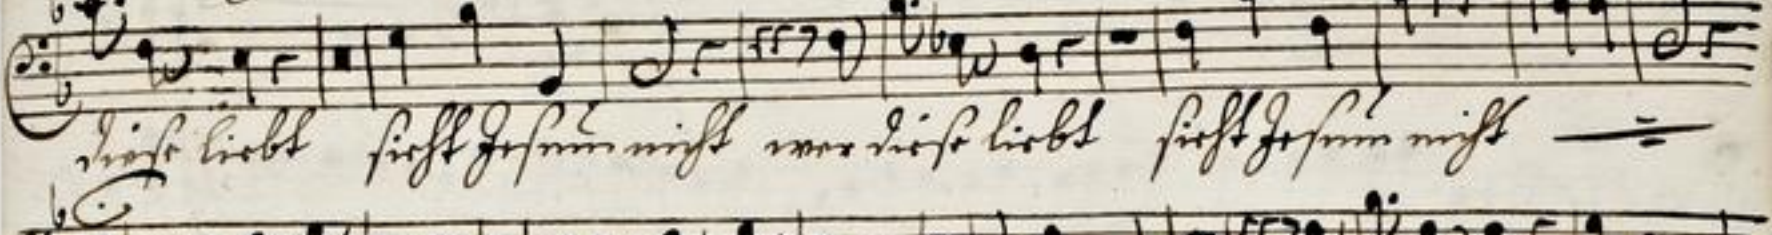 diese liebt sieht Jesum nicht wer diese liebt sieht Jesum nicht